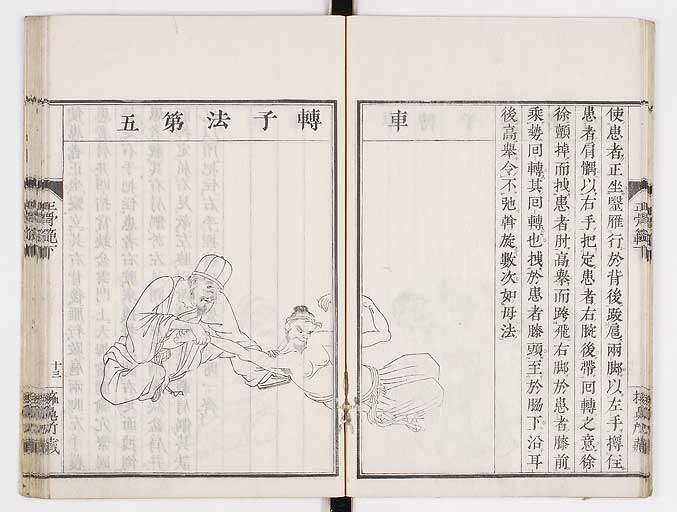 使患者正坐毉雁行於背後踆扈兩脚以左手摶住
患者肩髃以右手把定患者右腕後帶回轉之意徐
徐顫掉而拽患者肘高擧而跨飛右脚於患者膝前
乘勢回轉其回轉也拽於患者膝頭至於脇下沿耳
後高擧令不弛斡旋數次如母法
車轉子法第五
正骨範下
十三